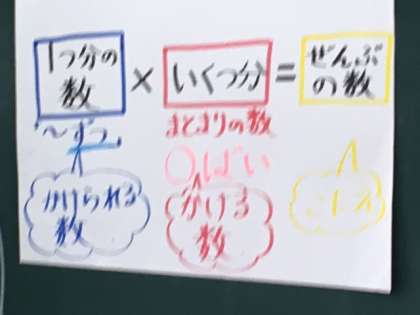 1つ分の数 × いくつ分 = ぜんぶの数
「〜ずつ」
まとまりの数
○ばい
かけられる数
かける数